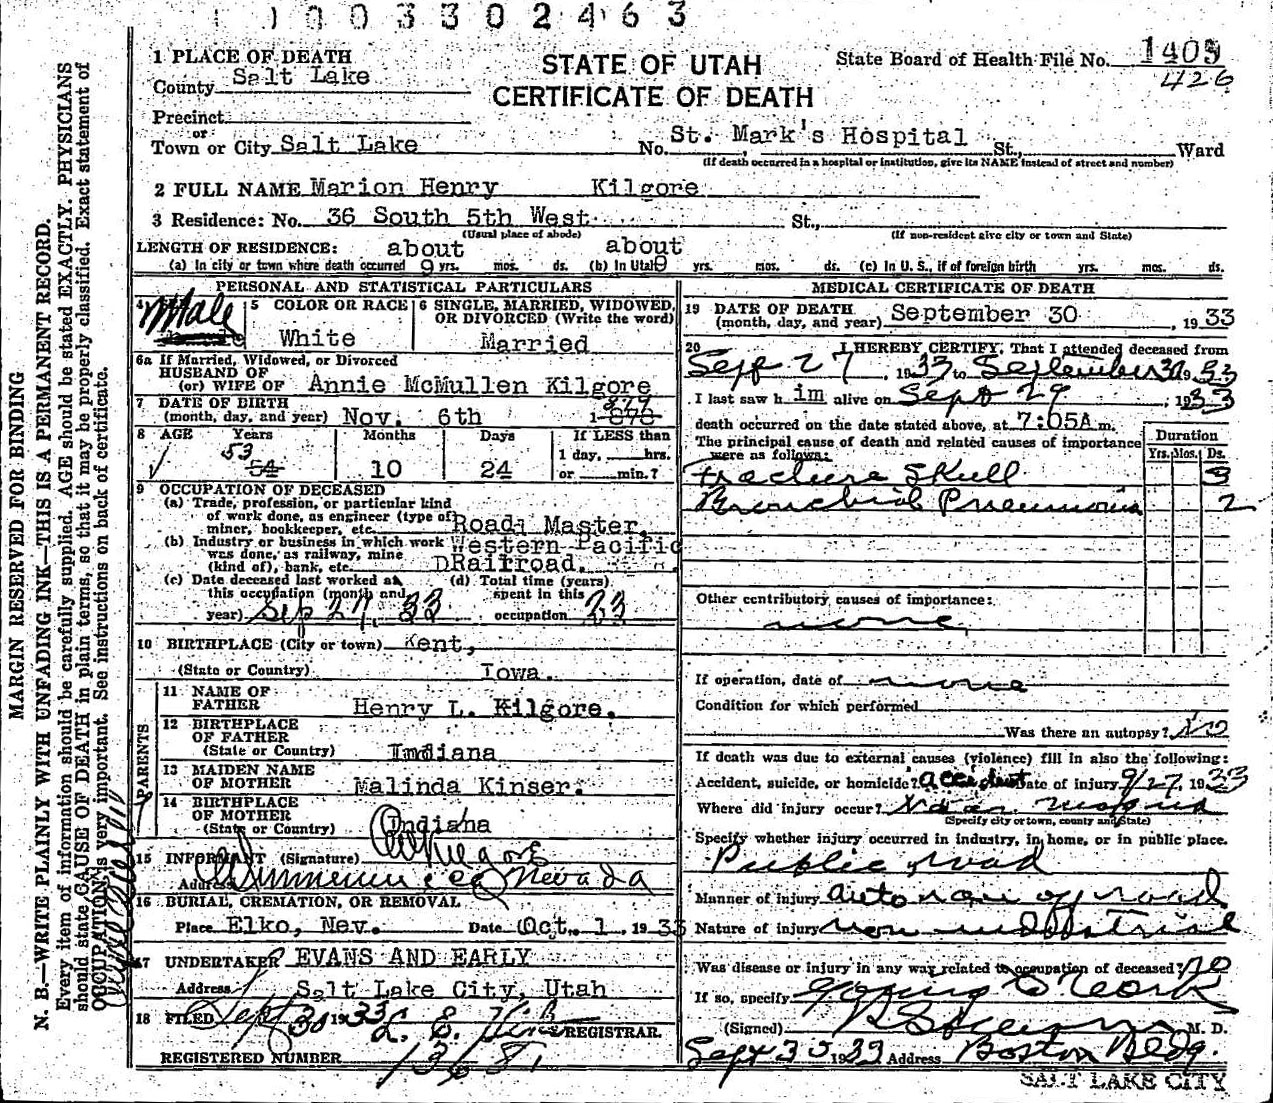 1003302463
1 PLACE OF DEATH
STATE OF UTAH
CERTIFICATE OF DEATH
State Board of Health File No. 1409
426
County Salt Lake
Precinct
or
Town or City Salt Lake No. St. Mark's Hospital St., Ward
(If death occurred in a hospital or institution, give its NAME instead of street and number)
2 FULL NAME Marion Henry Kilgore
3 Residence: No. 36 South 5th West St.,
(Usual place of abode) (If non-resident give city or town and State)
LENGTH OF RESIDENCE: about about
(a) In city or town where death occurred 9 yrs. mos. ds. (b) In Utah 9 yrs. mos. ds. (c) In U. S., if of foreign birth yrs. mos. ds.
PERSONAL AND STATISTICAL PARTICULARS
4 Male
5 COLOR OR RACE
White
6 SINGLE, MARRIED, WIDOWED, OR DIVORCED (Write the word)
Married
6a If Married, Widowed, or Divorced
HUSBAND OF
(or) WIFE OF Annie McMullen Kilgore
7 DATE OF BIRTH
(month, day, and year) Nov. 6th 1878 879
8 AGE Years Months Days If LESS than
53
54 10 24 1 day, hrs.
or min.?
9 OCCUPATION OF DECEASED
(a) Trade, profession, or particular kind
of work done, as engineer (type of
miner, bookkeeper, etc. Road Master,
(b) Industry or business in which work
was done, as railway, mine
(kind of), bank, etc. Western Pacific
DRailroad.
(c) Date deceased last worked at
this occupation (month and
year) Sep 27, 33
(d) Total time (years)
spent in this
occupation 23
10 BIRTHPLACE (City or town) Kent,
(State or Country) Iowa.
PARENTS
11 NAME OF
FATHER Henry L. Kilgore.
12 BIRTHPLACE
OF FATHER
(State or Country) Indiana
13 MAIDEN NAME
OF MOTHER Malinda Kinser.
14 BIRTHPLACE
OF MOTHER
(State or Country) Indiana
15 INFORMANT (Signature) Kilgore
Address Winnemucca Nevada
16 BURIAL, CREMATION, OR REMOVAL
Place Elko, Nev. Date Oct. 1, 1933
17 UNDERTAKER EVANS AND EARLY
Address Salt Lake City, Utah
18 FILED Sept 30 1933 L. E. REGISTRAR.
REGISTERED NUMBER
MEDICAL CERTIFICATE OF DEATH
19 DATE OF DEATH
(month, day, and year) September 30, 1933
20 I HEREBY CERTIFY, That I attended deceased from
Sept 27, 1933 to September 30 1933
I last saw him alive on Sept 29, 1933
death occurred on the date stated above, at 7:05A m.
The principal cause of death and related causes of importance
were as follows:
Duration
Yrs. Mos. Ds.
Fracture Skull 3
Bronchial Pneumonia 2
Other contributory causes of importance:
none
If operation, date of none
Condition for which performed
Was there an autopsy? No
If death was due to external causes (violence) fill in also the following:
Accident, suicide, or homicide? accident Date of injury 9/27, 1933
Where did injury occur? Near
(Specify city or town, county and State)
Specify whether injury occurred in industry, in home, or in public place.
Public road
Manner of injury auto ran off road
Nature of injury non industrial
Was disease or injury in any way related to occupation of deceased? no
If so, specify going to work
(Signed) M. D.
Sept 30 1933 Address Boston Bldg.
SALT LAKE CITY
MARGIN RESERVED FOR BINDING
N. B.—WRITE PLAINLY WITH UNFADING INK—THIS IS A PERMANENT RECORD.
Every item of information should be carefully supplied. AGE should be stated EXACTLY. PHYSICIANS
should state CAUSE OF DEATH in plain terms, so that it may be properly classified. Exact statement of
OCCUPATION is very important. See instructions on back of certificate.